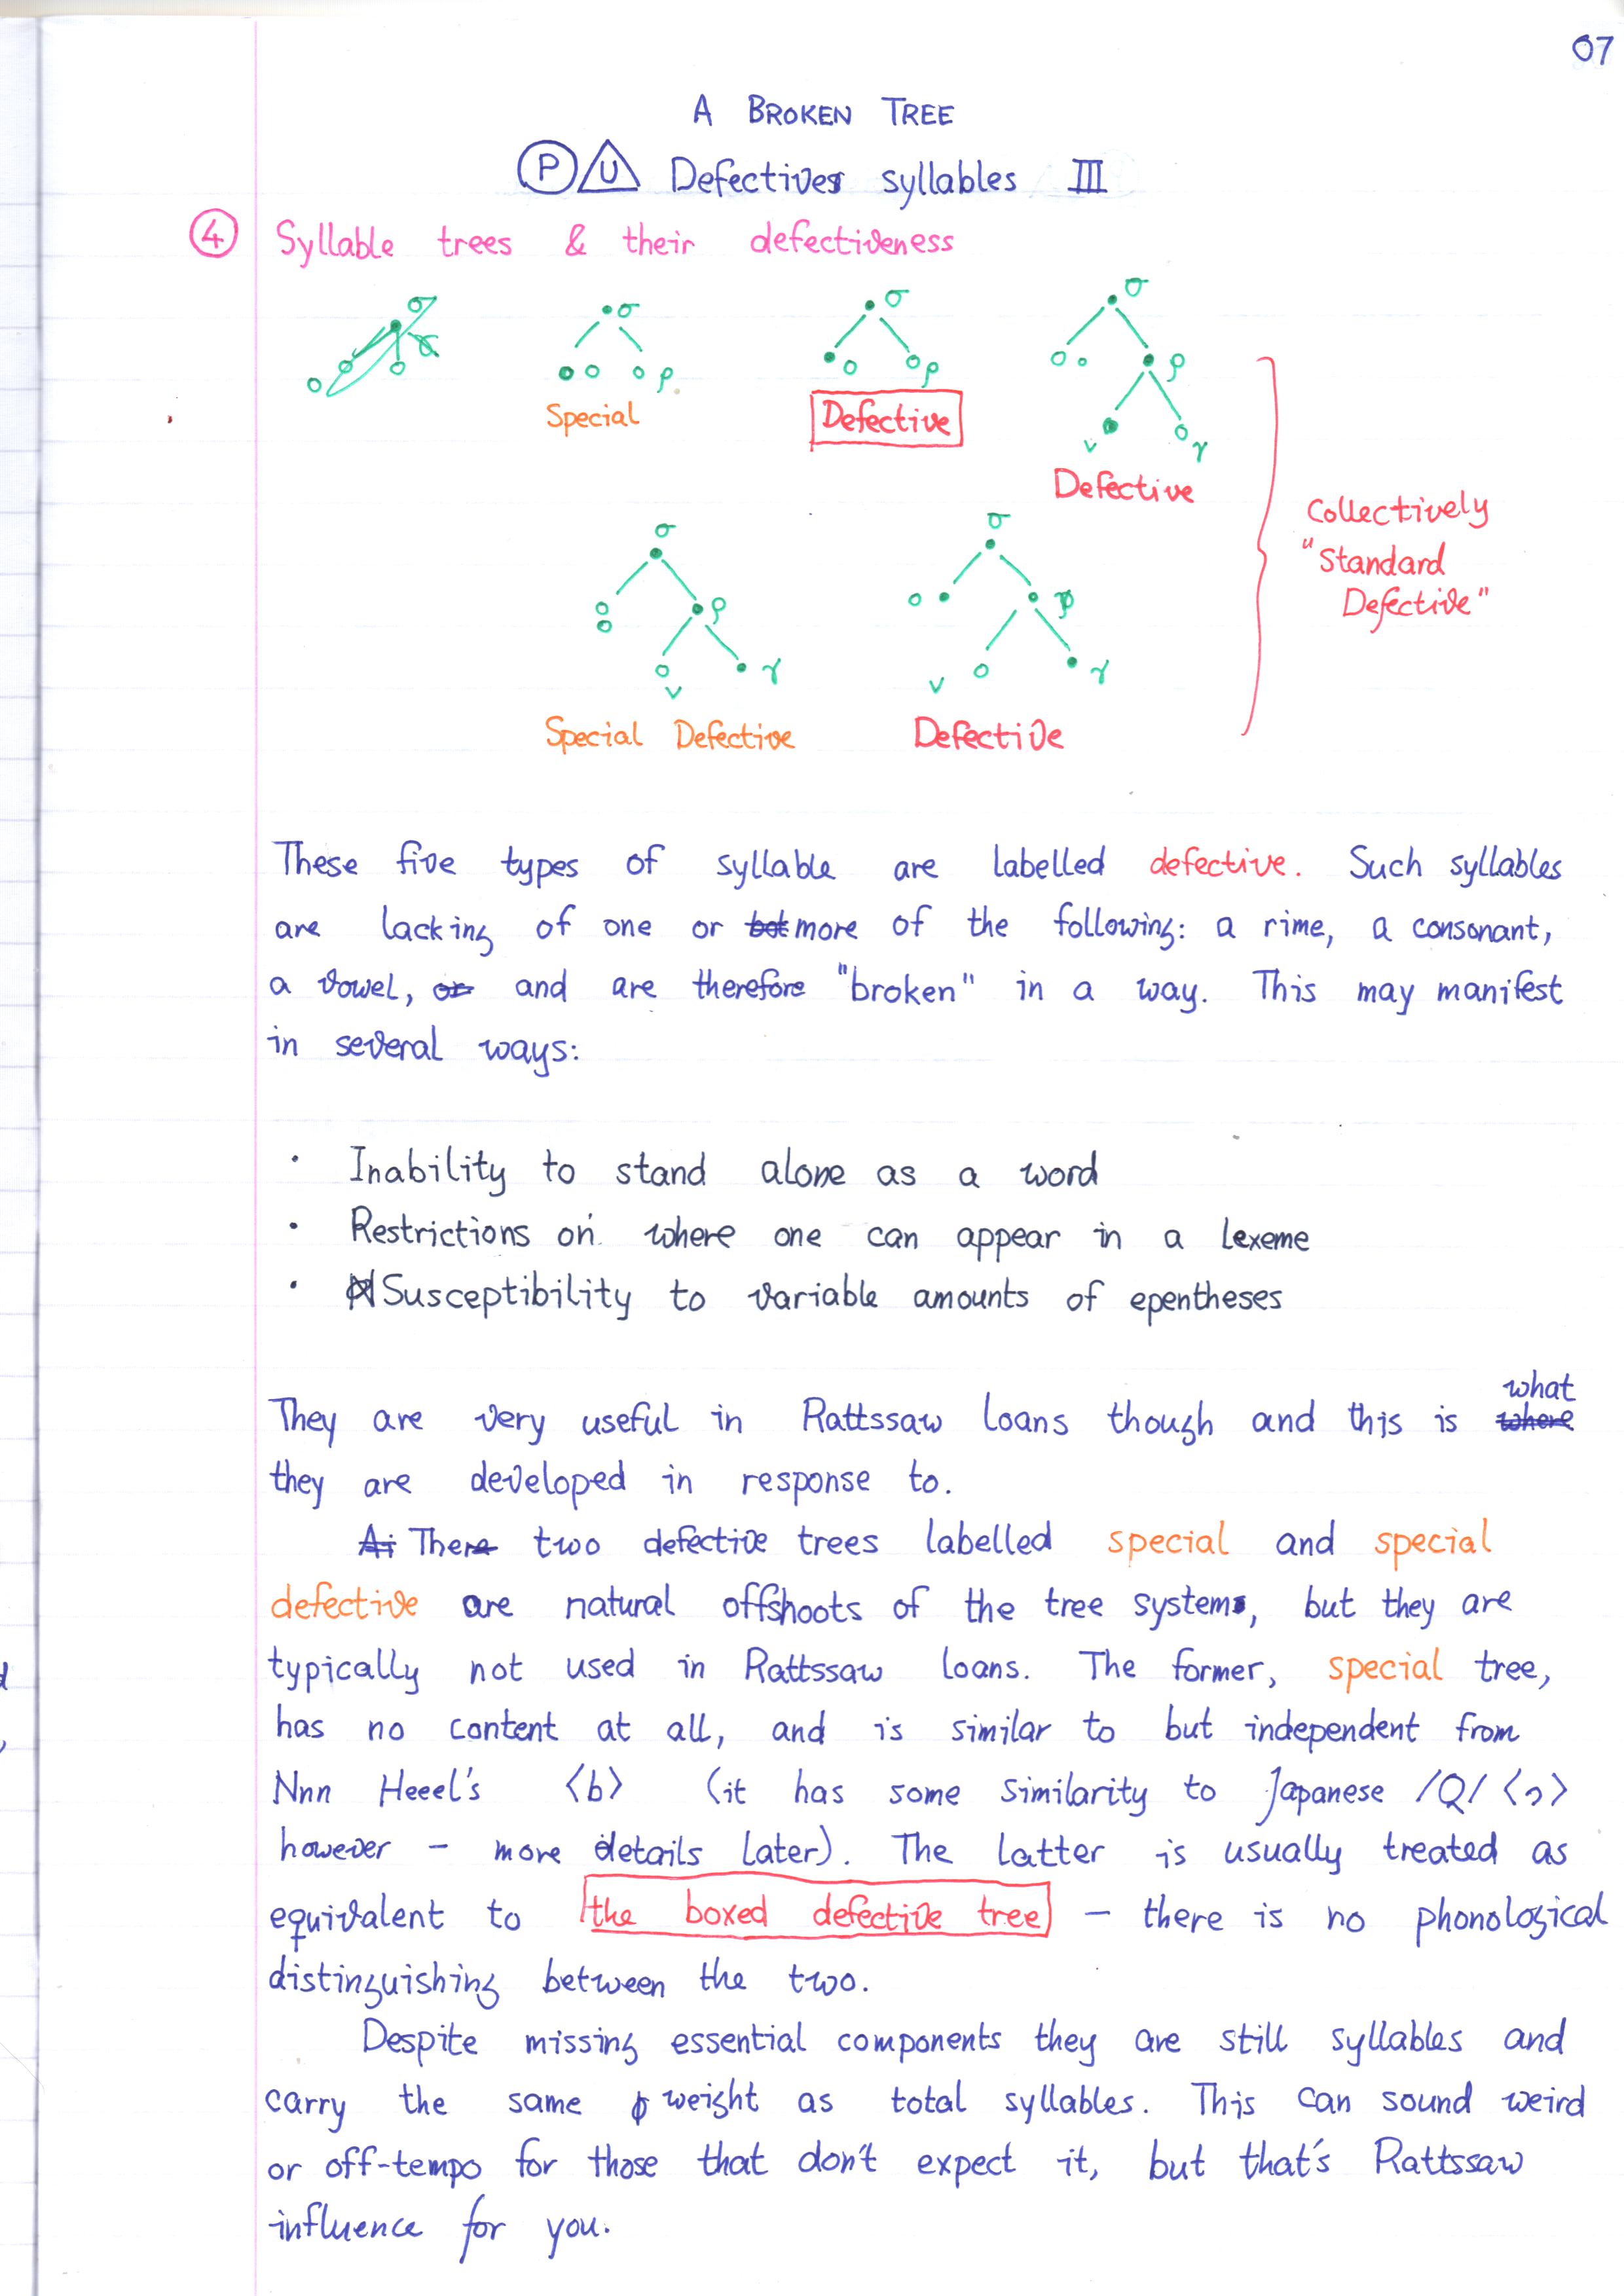 07
A BROKEN TREE
P U Defectives syllables III
4 Syllable trees & their defectiveness
σ
σ ο ο ρ
Special
σ ο ρ
Defective
σ ο ρ ν γ
Defective
σ ο ρ ν γ
Special Defective
σ ο ρ ν γ
Defective
Collectively
"Standard
Defective"
These five types of syllable are labelled defective. Such syllables
are lacking of one or bot more of the following: a rime, a consonant,
a vowel, or and are therefore "broken" in a way. This may manifest
in several ways:
· Inability to stand alone as a word
· Restrictions on where one can appear in a lexeme
· Susceptibility to variable amounts of epentheses
what
They are very useful in Rattssaw loans though and this is where
they are developed in response to.
There two defective trees labelled special and special
defective are natural offshoots of the tree systems, but they are
typically not used in Rattssaw loans. The former, special tree,
has no content at all, and is similar to but independent from
Nnn Heeel's <b> (it has some similarity to Japanese /Q/ <っ>
however – more details later). The latter is usually treated as
equivalent to the boxed defective tree – there is no phonological
distinguishing between the two.
Despite missing essential components they are still syllables and
carry the same weight as total syllables. This can sound weird
or off-tempo for those that don't expect it, but that's Rattssaw
influence for you.